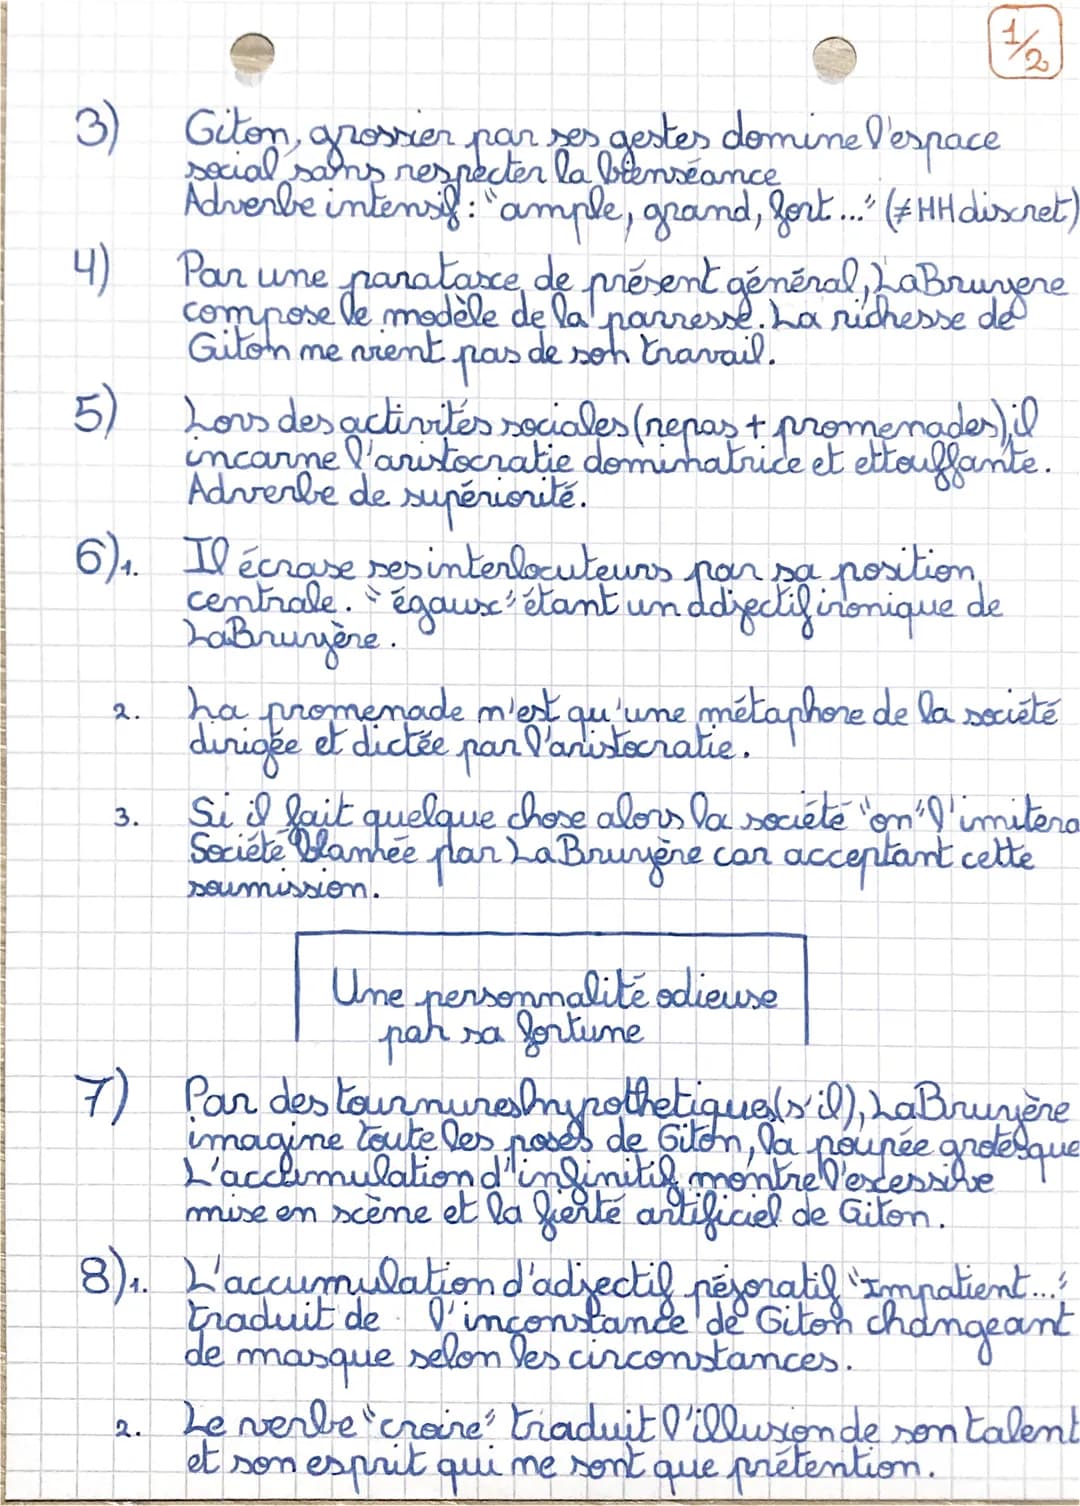 1/2
3) Giton, grossier par ses gestes domine l'espace
social sans respecter la bienséance
Adverbe intensif : "ample, grand, fort..." (≠ HH discret)
4) Par une parataxe de présent général, La Bruyere
compose le modèle de la parresse. La richesse de
Giton ne vient pas de son travail.
5) Lors des activités sociales (repas + promenades), il
incarne l'aristocratie dominatrice et ettouffante.
Adverbe de supériorité.
6) 1. Il écrase ses interlocuteurs par sa position
centrale. "égaux" étant un adjectif ironique de
La Bruyère.
2. La promenade n'est qu'une métaphore de la société
dirigée et dictée par l'aristocratie.
3. Si il fait quelque chose alors la société "on" l'imitera
Société blamée par La Bruyère car acceptant cette
soumission.
Une personnalité odieuse
par sa fortune
7) Par des tournures hypothetiques (s'il), La Bruyère
imagine toute les poses de Giton, la poupée grotesque
L'accumulation d'infinitif montre l'excessive
mise en scène et la fierté artificiel de Giton.
8) 1. L'accumulation d'adjectif péjoratif "Impatient..."
traduit de l'inconstance de Giton changeant
de masque selon les circonstances.
2. Le verbe "croire" traduit l'illusion de son talent
et son esprit qui ne sont que prétention.